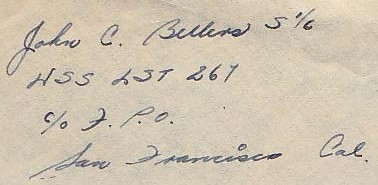 John C. Bellers S 1/c
USS LST 267
c/o F. P.O.
San Francisco Cal.